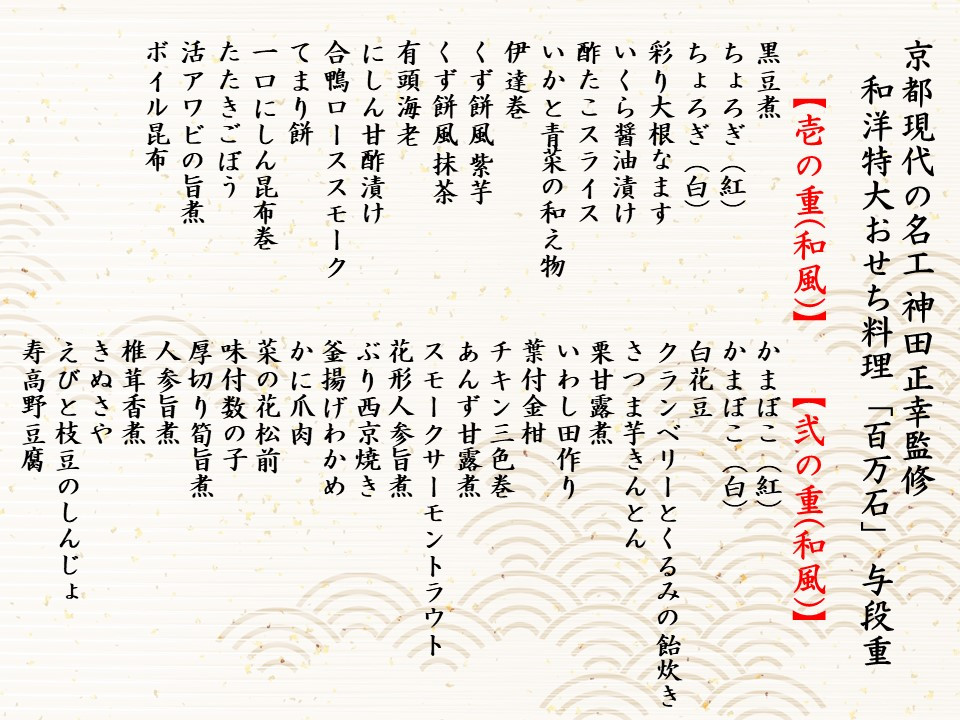 京都現代の名工 神田正幸監修
和洋特大おせち料理 「百万石」 与段重
【壱の重(和風)】
黒豆煮
ちょろぎ（紅）
ちょろぎ（白）
彩り大根なます
いくら醤油漬け
酢たこスライス
いかと青菜の和え物
伊達巻
くず餅風紫芋
くず餅風抹茶
有頭海老
にしん甘酢漬け
合鴨ローススモーク
てまり餅
一口にしん昆布巻
たたきごぼう
活アワビの旨煮
ボイル昆布
【弐の重(和風)】
かまぼこ（紅）
かまぼこ（白）
白花豆
クランベリーとくるみの飴炊き
さつま芋きんとん
栗甘露煮
いわし田作り
葉付金柑
チキン三色巻
あんず甘露煮
スモークサーモントラウト
花形人参旨煮
ぶり西京焼き
釜揚げわかめ
かに爪肉
菜の花松前
味付数の子
厚切り筍旨煮
人参旨煮
椎茸香煮
きぬさや
えびと枝豆のしんじょ
寿高野豆腐